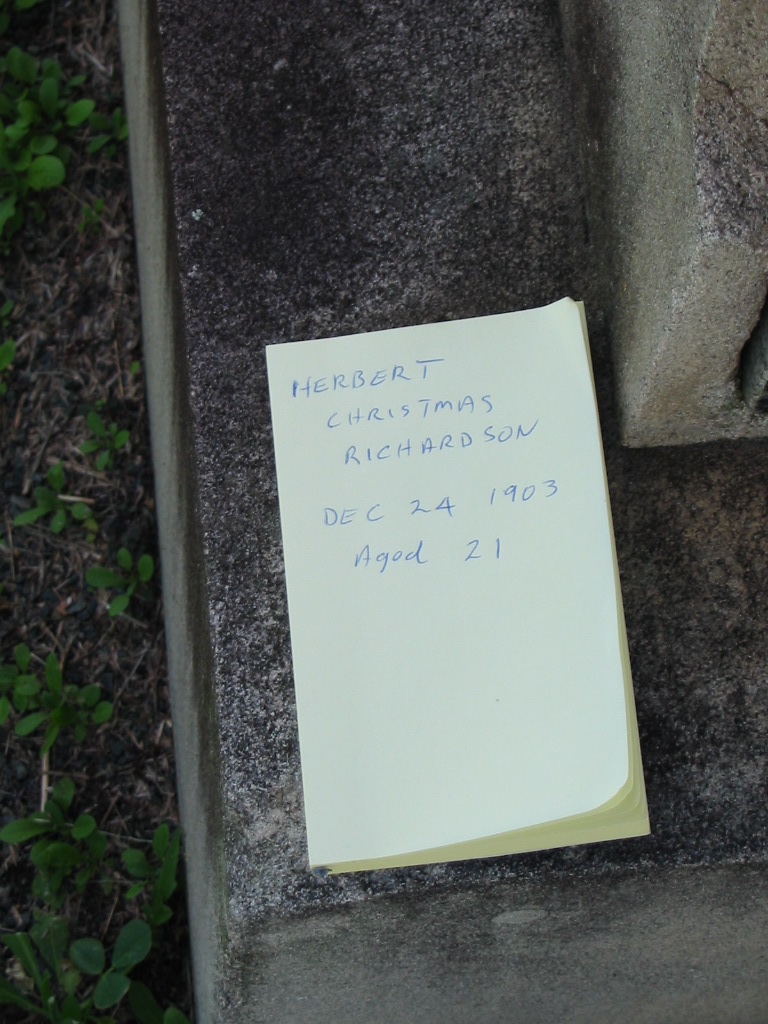 HERBERT
CHRISTMAS
RICHARDSON
DEC 24 1903
Aged 21